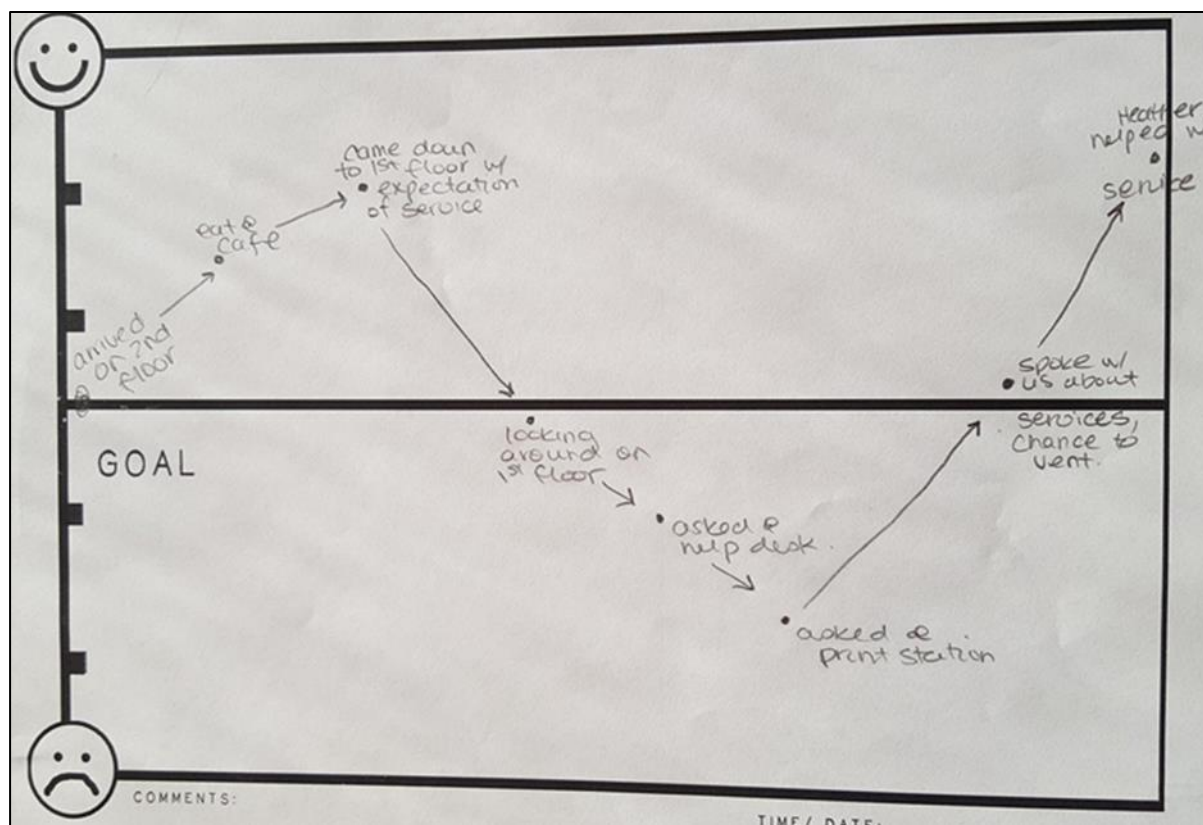 arrived
on 2nd
floor
eat @
cafe
came down
to 1st floor w/
expectation
of service
looking
around on
1st floor
asked @
help desk.
asked @
print station
spoke w/
us about
services,
chance to
vent.
Heather
helped w
service
GOAL
COMMENTS:
TIME/ DATE: